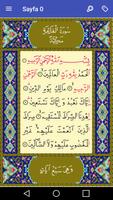 Sayfa 0
سُورَةُ الْفَاتِحَةِ
مَكِّيَّةٌ
بِسْمِ اللّٰهِ الرَّحْمٰنِ الرَّحِيمِ
اَلْحَمْدُ لِلّٰهِ رَبِّ الْعَالَمِينَ اَلرَّحْمٰنِ
الرَّحِيمِ مَالِكِ يَوْمِ الدِّينِ اِيَّاكَ نَعْبُدُ
وَاِيَّاكَ نَسْتَعِينُ اِهْدِنَا الصِّرَاطَ الْمُسْتَقِيمَ
صِرَاطَ الَّذِينَ اَنْعَمْتَ عَلَيْهِمْ غَيْرِ
الْمَغْضُوبِ عَلَيْهِمْ وَلَا الضَّالِّينَ
وَهِيَ سَبْعُ اٰيَاتٍ